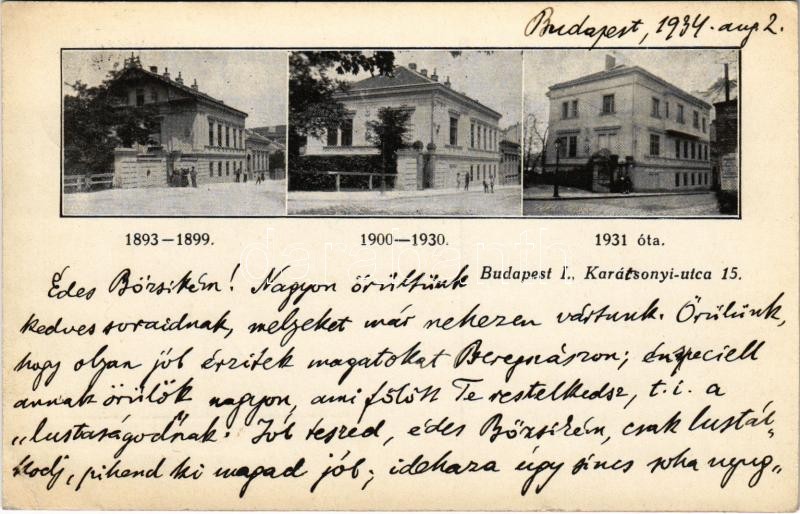 Budapest, 1934. aug 2.
1893—1899.
1900—1930.
1931 óta.
Budapest I., Karátsonyi-utca 15.
Édes Bözsikém! Nagyon örültünk
kedves soraidnak, melyeket már nehezen vártunk. Örülünk,
hogy olyan jól érzitek magatokat Beregnászon; én speciell
annak örülök nagyon, ami fölött Te restelkedsz, t. i. a
„lustaságod"nak. Jól teszed, édes Bözsikém, csak lustál-
kodj, pihend ki magad jól; idehaza úgy sincs soha nyug-